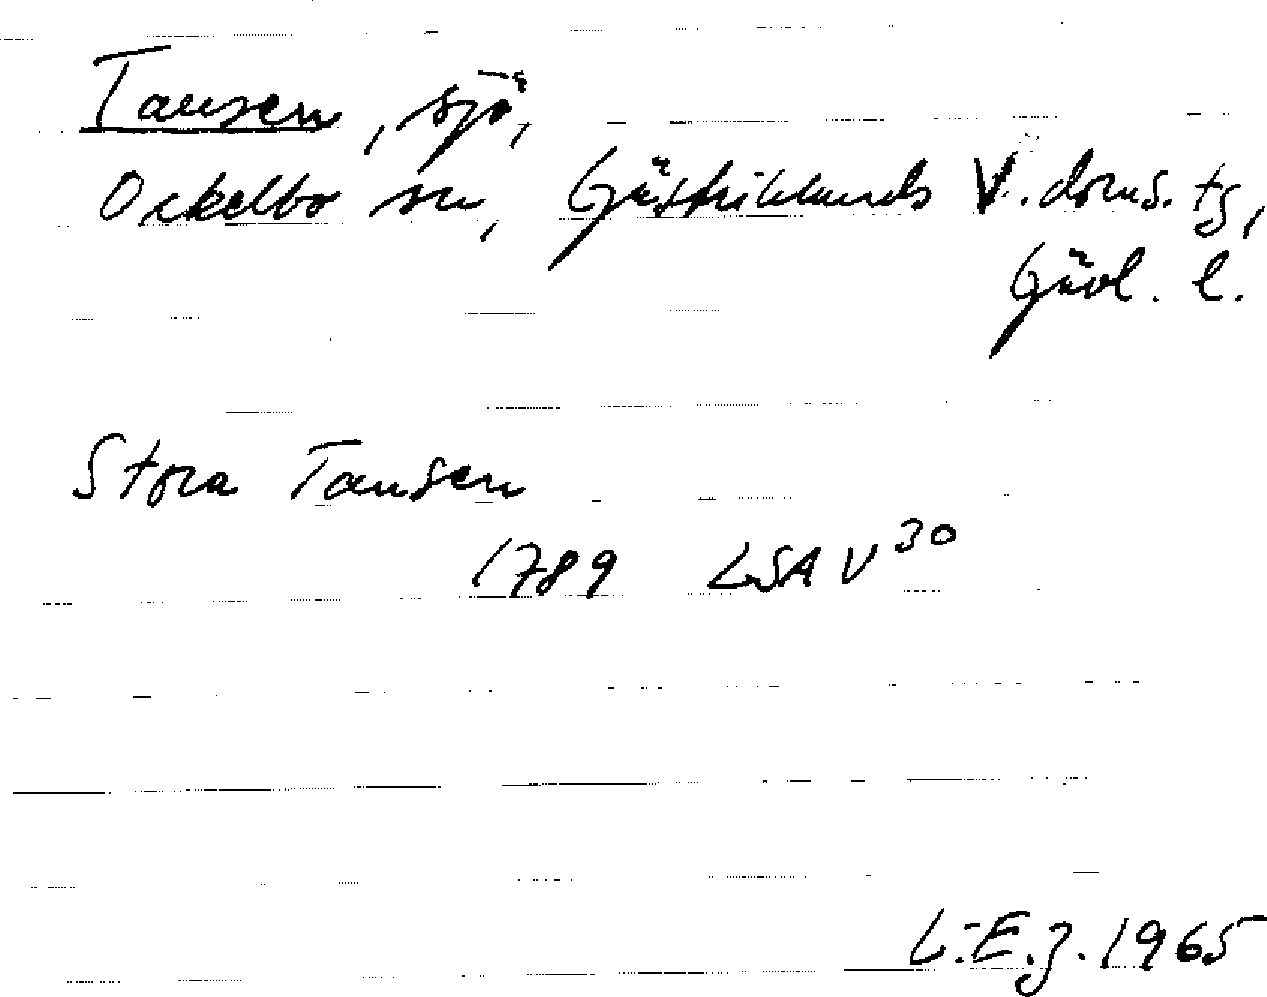 Tausen, sjö,
Ockelbo sn, Gästriklands V. doms. tg,
Gävl. l.
Stora Tausen
1789 LSA V 30
L.E.J. 1965